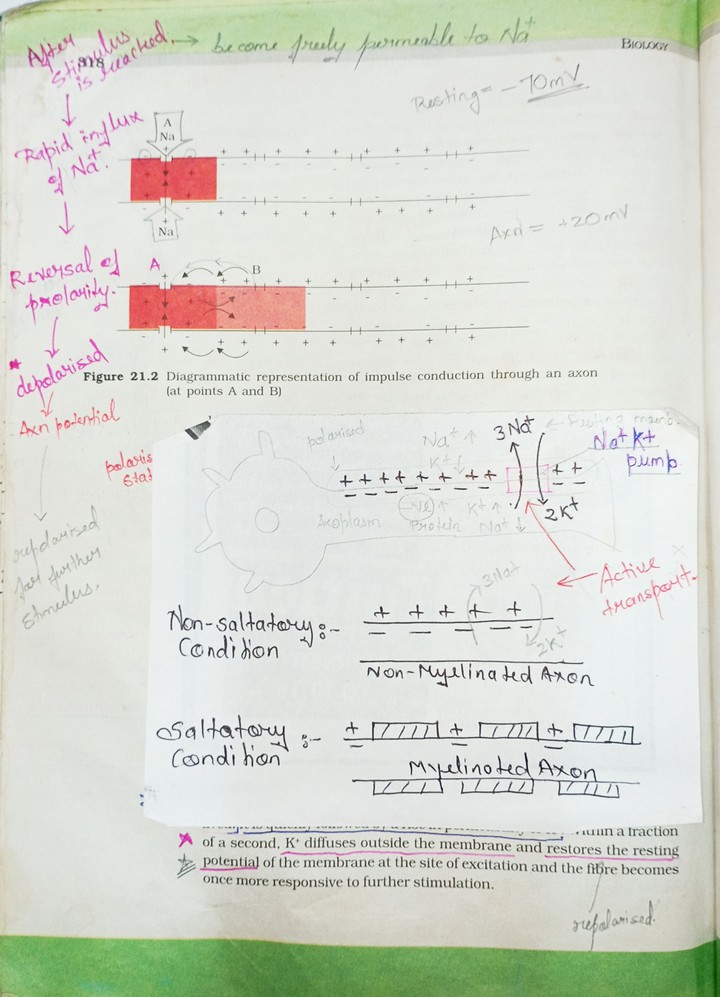 After
Stimulus
is reached. → become freely permeable to Na⁺
318
BIOLOGY
Resting = -70mV
Rapid influx
of Na⁺.
A
Na
Na
Axn = +20mV
Reversal of
prolarity.
A
B
* depolarised
Axn potential
repolarised
for further
stimulus.
Figure 21.2 Diagrammatic representation of impulse conduction through an axon
(at points A and B)
polaris
Stat
polarised
Na⁺ ↑
K⁺ ↓
3Na⁺
← Resting memb.
Na⁺ K⁺
pump
+ + + + + + + + + +
Axoplasm
-ve ↑
Protein
K⁺ ↑
Na⁺ ↓
2K⁺
← Active
transport.
Non-saltatory :-
Condition
+ + + + +
3Na⁺
2K⁺
Non-Myelinated Axon
Saltatory :-
Condition
+ + +
Myelinated Axon
within a fraction
of a second, K⁺ diffuses outside the membrane and restores the resting
potential of the membrane at the site of excitation and the fibre becomes
once more responsive to further stimulation.
repolarised.